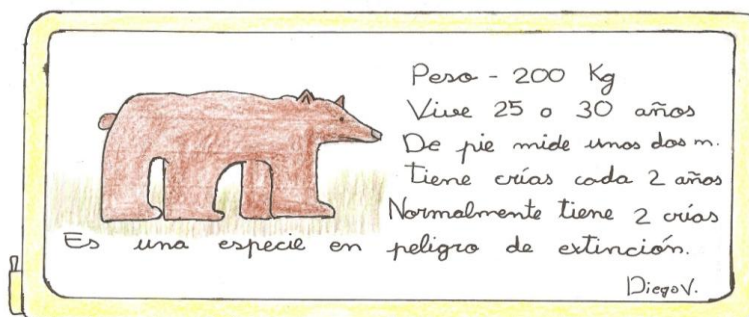 Peso - 200 Kg
Vive 25 o 30 años
De pie mide unos dos m.
tiene crías cada 2 años
Normalmente tiene 2 crías
Es una especie en peligro de extinción.
Diego V.